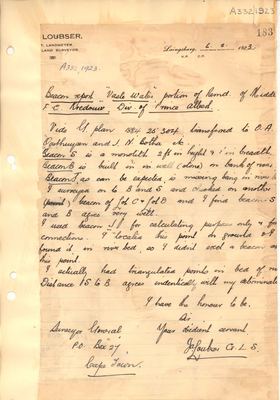 A332/1923
LOUBSER,
T. LANDMETER,
LAND SURVEYOR
183
Laingsburg, 6. 2. 1923
A332 1923.
Beacon report "Vaste Water" portion of Remd. of Middle
F.C. Div. of Prince Albert.
Vide G. plan transferred to O. A.
Oosthuysen and J. N. Botha etc
Beacon S is a monolith 2 ft in height & 1 in breadth
Beacon B is built in in well (stone) on bank of river
Beacon J as can be expected, is missing being in river b
I surveyed on to B and S and checked on another
(point) beacon of Lot C & Lot D and I find beacons S
and B agree very well.
I used beacon J for calculating purposes only &
connections. I located this point on ground &
found it in river bed so I didn't erect a beacon at
this point.
I actually had triangulated points in bed of river
Distance S to B agrees identically with my
I have the honour to be,
Sir
Surveyor General, Your obedient servant
P.O. Box 27, J. Loubser G. L. S.
Cape Town.